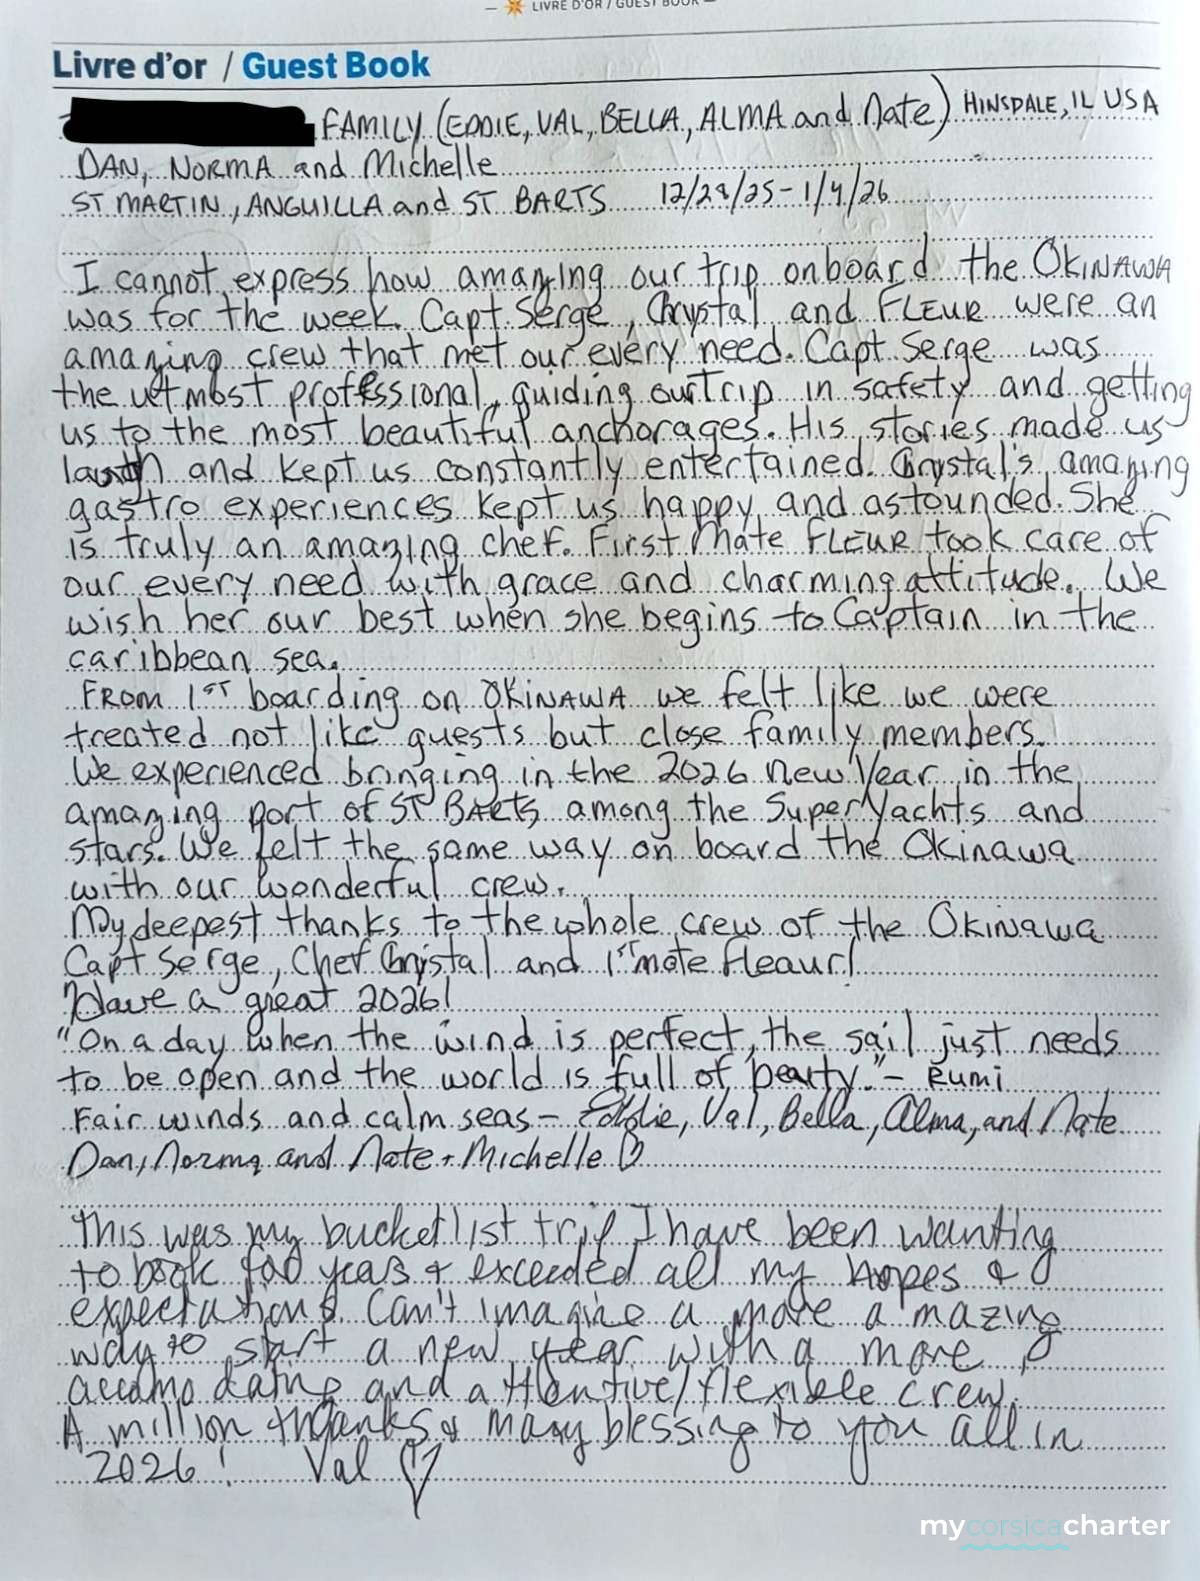 LIVRE D'OR / GUEST BOOK
Livre d'or / Guest Book
FAMILY (EDDIE, VAL, BELLA, ALMA and Nate) HINSDALE, IL USA
DAN, NORMA and Michelle
ST MARTIN, ANGUILLA and ST BARTS 12/28/25 - 1/4/26
I cannot express how amazing our trip onboard the OKINAWA
was for the week. Capt. Serge, Chrystal and FLEUR were an
amazing crew that met our every need. Capt Serge was
the utmost professional, guiding our Trip in safety and getting
us to the most beautiful anchorages. His stories made us
and kept us constantly entertained. Crystal's amazing
gastro experiences kept us happy and astounded. She
is truly an amazing chef. First Mate FLEUR took care of
our every need with grace and charming attitude. We
wish her our best when she begins to Captain in the
caribbean sea.
FROM 1ST boarding on OKINAWA we felt like we were
treated not like guests but close family members.
We experienced bringing in the 2026 New Year in the
amazing port of ST BARTS among the Super Yachts and
stars. We felt the same way on board the Okinawa
with our wonderful crew.
My deepest thanks to the whole crew of the Okinawa
Capt Serge, Chef Crystal and 1st mate Fleaur!
Have a great 2026!
"On a day when the wind is perfect, the sail just needs
to be open and the world is full of beauty." - Rumi
Fair winds and calm seas - Eddie, Val, Bella, Alma, and Nate
Dan, Norma and Nate + Michelle
This was my bucket list trip I have been wanting
to book for years & exceeded all my hopes &
expectations. Can't imagine a more amazing
way to start a new year with a more
accomodating and attentive/flexible crew.
A million thanks & many blessing to you all in
2026! Val
mycorsicacharter